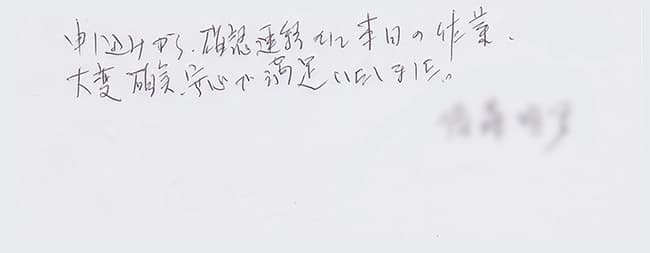 申し込みから、確認連絡そして本日の作業、
大変確実、安心で満足いたしました。